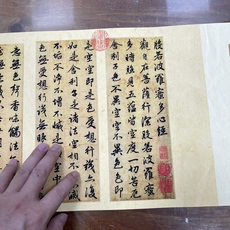 般若波羅蜜多心經
觀自在菩薩行深般若波羅蜜
多時照見五蘊皆空度一切苦厄
舍利子色不異空空不異色色即
是空空即是色受想行識亦復
如是舍利子是諸法空相不生不滅
不垢不淨不增不減是故空中
無色無受想行識無眼
意無色聲香味觸法